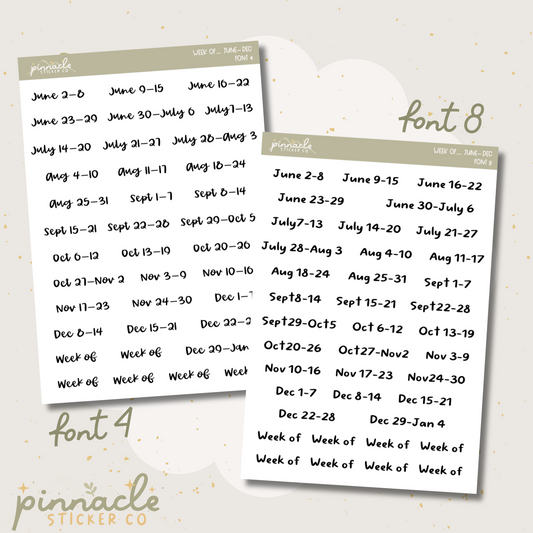 pinnacle
STICKER CO
WEEK OF... JUNE-DEC
FONT 4
June 2-8 June 9-15 June 16-22
June 23-29 June 30-July 6 July7-13
July 14-20 July 21-27 July 28-Aug 3
Aug 4-10 Aug 11-17 Aug 18-24
Aug 25-31 Sept 1-7 Sept 8-14
Sept 15-21 Sept 22-28 Sept 29-Oct 5
Oct 6-12 Oct 13-19 Oct 20-26
Oct 27-Nov 2 Nov 3-9 Nov 10-16
Nov 17-23 Nov 24-30 Dec 1-7
Dec 8-14 Dec 15-21 Dec 22-2
Week of Week of Dec 29-Jan
Week of Week of Week of Week
font 4
font 8
pinnacle
STICKER CO
WEEK OF... JUNE-DEC
FONT 8
June 2-8 June 9-15 June 16-22
June 23-29 June 30-July 6
July7-13 July 14-20 July 21-27
July 28-Aug 3 Aug 4-10 Aug 11-17
Aug 18-24 Aug 25-31 Sept 1-7
Sept8-14 Sept 15-21 Sept22-28
Sept29-Oct5 Oct 6-12 Oct 13-19
Oct20-26 Oct27-Nov2 Nov 3-9
Nov 10-16 Nov 17-23 Nov24-30
Dec 1-7 Dec 8-14 Dec 15-21
Dec 22-28 Dec 29-Jan 4
Week of Week of Week of Week of
Week of Week of Week of Week of
pinnacle
STICKER CO